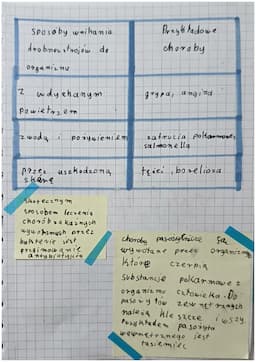 sposoby wnikania
drobnoustrojów do
organizmu
Przykładowe
choroby
z wdychanym
powietrzem
grypa, angina
z wodą i pożywieniem
zatrucia pokarmowe,
salmonella
przez uszkodzoną
skórę
tężec, borelioza
skutecznym
sposobem leczenia
chorób zakaźnych
wywołanych przez
bakterie jest
przyjmowanie
antybiotyków
choroby pasożytnicze są
wywołane przez organizmy
które czerpią
substancje pokarmowe z
organizmu człowieka. Do
pasożytów zewnętrznych
należą kleszcze i wszy.
Przykładem pasożyta
wewnętrznego jest
tasiemiec